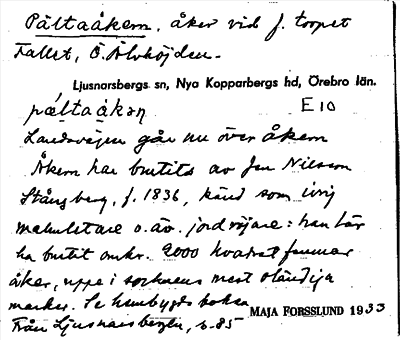 Pältaåkern, åker vid f. torpet
Fallet, Ö. Älvhöjden.
Ljusnarsbergs sn, Nya Kopparbergs hd, Örebro län.
pæltaåkan E10
Landsvägen går nu över åkern
Åkern har brutits av Jan Nilsson
Stångberg, f. 1836, känd som ivrig
malmletare o. äv. jordröjare: han lär
ha brutit omkr. 2000 kvadratfamnar
åker, uppe i socknens mest oländiga
marker. Se hembygdsboken
Från Ljusnarsbergen, s. 85
MAJA FORSSLUND 1933